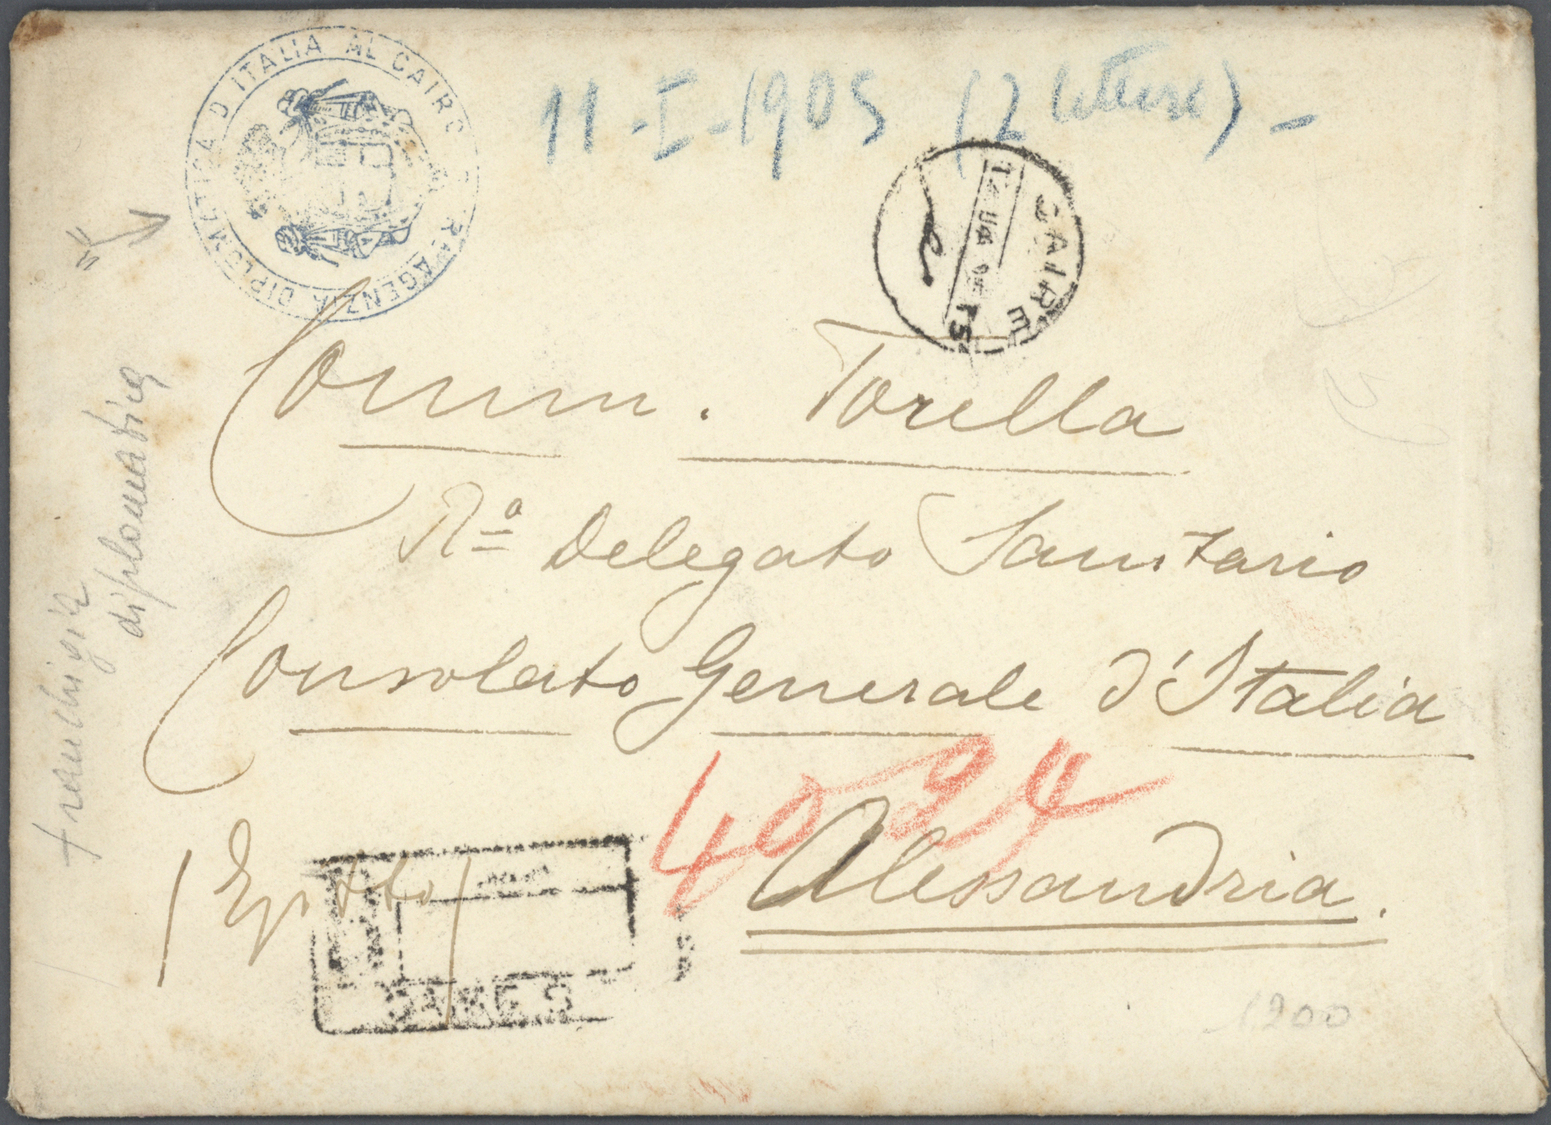 Rª AGENZIA DIPLOMATICA D'ITALIA AL CAIRO
11-I-1905 (2 lettere) -
CAIRE
Comm. Torella
Rº Delegato Sanitario
Consolato Generale d'Italia
Alessandria.
(Egitto)
franchigia
diplomatica
CAIRE
1200